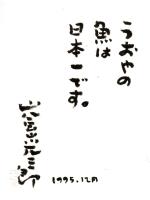 うおやの
魚は
日本一です。
1995.12月